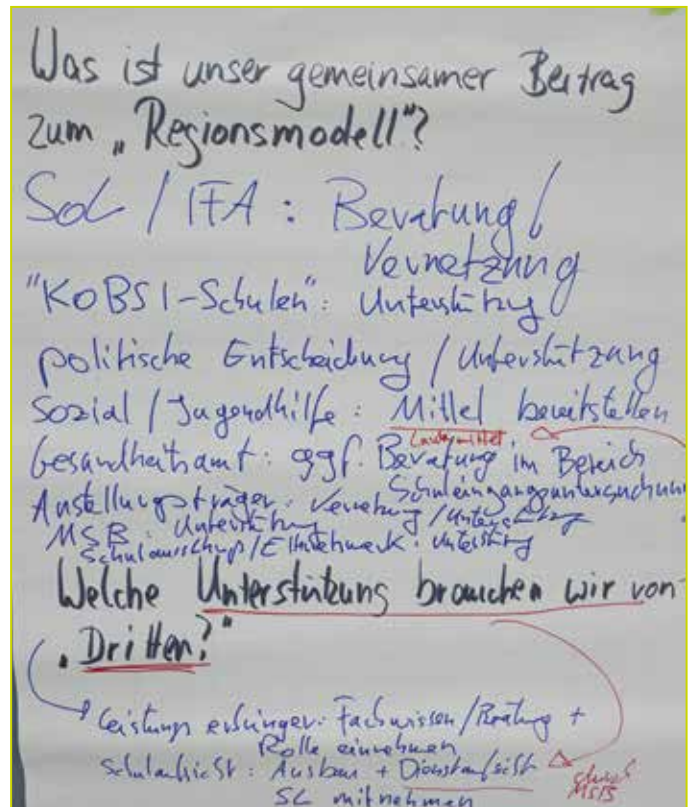 Was ist unser gemeinsamer Beitrag
zum „Regionsmodell“?
SoL / IFA : Beratung /
Vernetzung
"KOBSI-Schulen": Unterstützung
politische Entscheidung / Unterstützung
Sozial / Jugendhilfe : Mittel bereitstellen
Landesmittel
Gesundheitsamt : ggf. Beratung im Bereich
Schuleingangsuntersuchung
Anstellungsträger : Vernetzung / Unterstützung
MSB : Unterstützung
Schulausschuss / Elternnetzwerk : Unterstützung
Welche Unterstützung brauchen wir von
„Dritten?“
Leistungserbringer: Fachwissen / Beratung +
Rolle einnehmen
Schulaufsicht : Ausbau + Dienstaufsicht
durch
MSB
SL mitnehmen